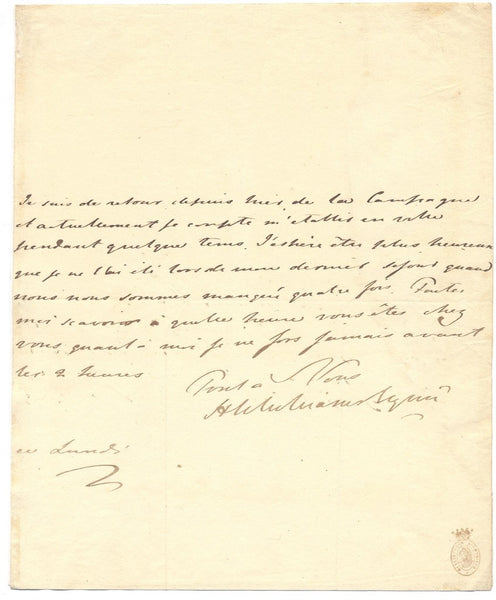 Je suis de retour depuis hier de la Campagne
et actuellement je compte m'etablir en ville
pendant quelque tems. J'espère être plus heureux
que je ne l'ai été lors de mon dernier séjour quand
nous nous sommes manqué quatre fois. Faites
moi scavoir à quelle heure vous êtes chez
vous, quant à moi je ne sors jamais avant
les 2 heures
Tout à Vous
ce Lundi